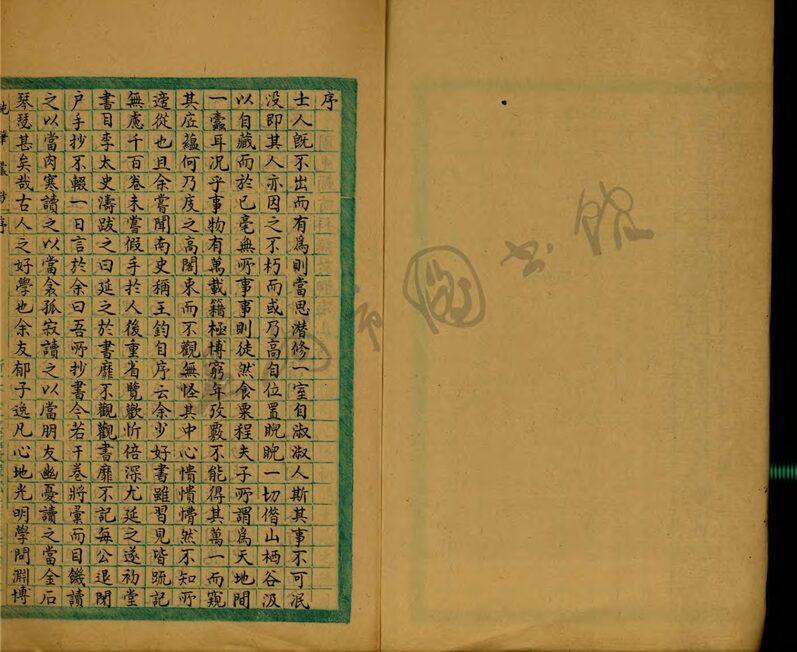 序
士人既不出而有爲則當思潛修一室自淑淑人斯其事不可泯
没即其人亦因之不朽而或乃高自位置睨睨一切偕山栖谷汲
以自藏而於已毫無所事事則徒然食粟程夫子所謂爲天地間
一蠹耳况乎事物有萬載籍極博窮年孜覈不能得其萬一而窺
其底蘊何乃度之高閣束而不觀無怪其中心憒憒懵然不知所
適從也且余嘗聞南史稱王鈞自序云余少好書雖習見皆疏記
無慮千百卷未嘗假手於人後重省覽歡忻倍深尤延之遂初堂
書目李太史濤跋之曰延之於書靡不觀觀書靡不記每公退閉
户手抄不輟一日言於余曰吾所抄書今若干卷將彙而目饑讀
之以當肉寒讀之以當衾孤寂讀之以當朋友幽憂讀之當金石
琴瑟甚矣哉古人之好學也余友郁子逸凡心地光明學問淵博
序
圖書館